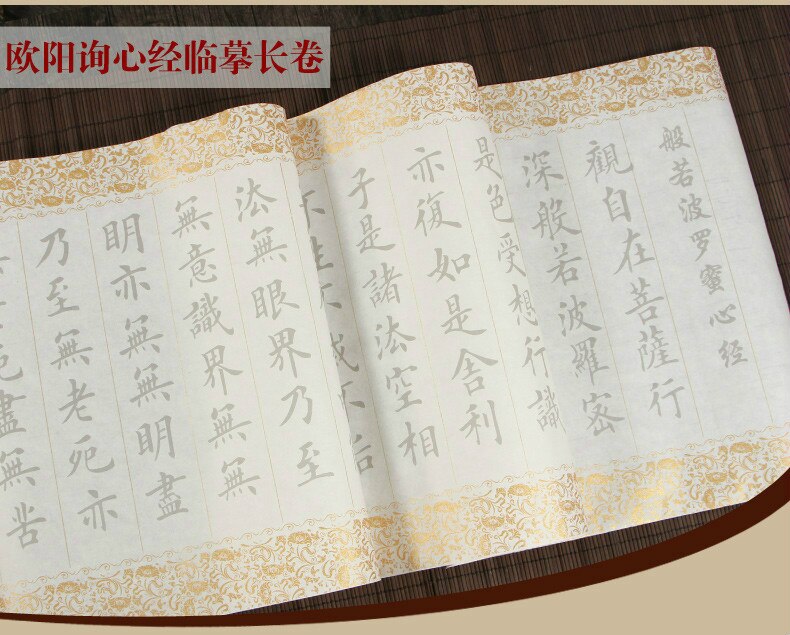 欧阳询心经临摹长卷
般若波罗蜜心经
觀自在菩薩行
深般若波羅密
是色受想行識
亦復如是舍利
子是諸法空相
不生不滅不垢
法無眼界乃至
無意識界無無
明亦無無明盡
乃至無老死亦
死盡無苦